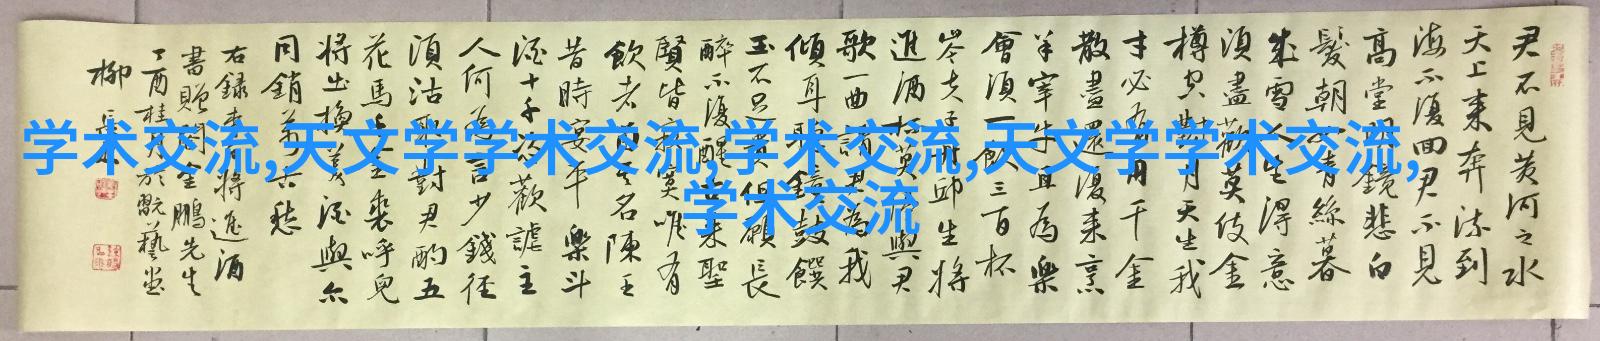 君不見黄河之水
天上来奔流到
海不復回君不見
高堂明鏡悲白
髮朝如青絲暮
成雪人生得意
須盡歡莫使金
樽空對月天生我
才必有用千金
散盡還復来烹
羊宰牛且為樂
會須一飲三百杯
岑夫子丹邱生将
進酒杯莫停與君
歌一曲請君為我
傾耳聽鐘鼓饌
玉不足貴但願長
醉不復醒古来聖
賢皆寂寞唯有
飲者留其名陳王
昔時宴平樂斗
酒十千恣歡謔主
人何為言少錢径
須沽取對君酌五
花馬千金裘呼兒
将出換美酒與尔
同銷萬古愁
右録李白将進酒
書贈金鵬先生
丁酉桂月於翫藝堂
柳
学术交流,天文学学术交流,学术交流,天文学学术交流,
学术交流